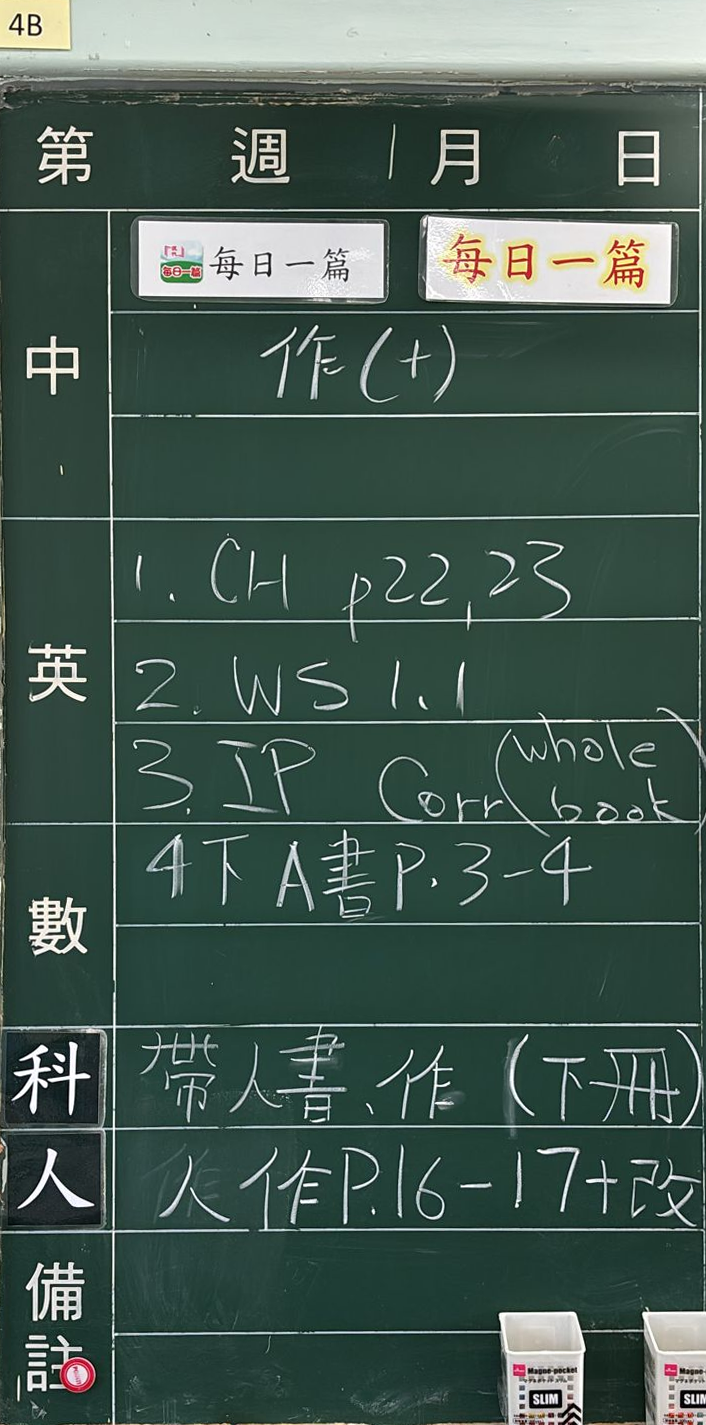 4B
第 週 月 日
每日一篇 每日一篇 每日一篇
中
作(+)
英
1. CH p22,23
2. WS 1.1
3. IP Corr (whole book)
數
4下 A書 P.3-4
科 帶人書、作 (下冊)
人 人作P.16-17+改
備註
Magne-pocket Magne-
SLIM SLIM